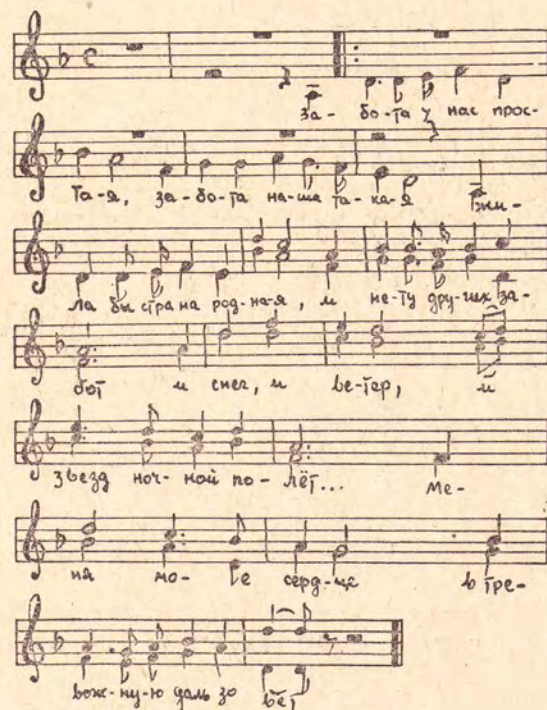 За- бо-та у нас прос-
тая, за-бо-та на-ша та-ка-я Жи-
ла бы стра на род-на-я, и не-ту дру-гих за-
бот и снег, и ве-тер, и
звезд ноч-ной по-лёт... Ме-
ня мо-е серд-це в тре-
вож-ну-ю даль зо вёт